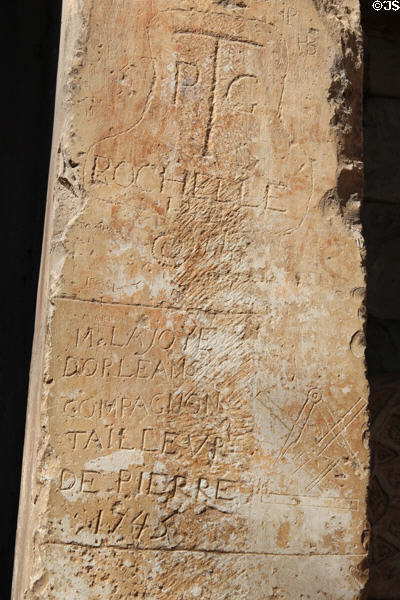 ©JS
P T G
ROCHELLE
M. LAJOYE
DORLEANS
COMPAGNON
TAILLEUR
DE PIERRE